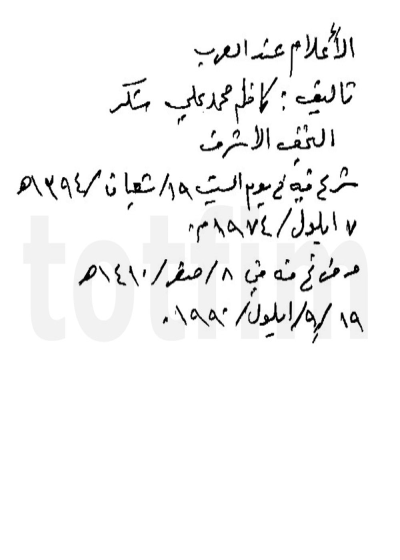 الأعلام عند العرب
تأليف : كاظم محمد علي شكر
النجف الأشرف
شرع فيه في يوم السبت ١٩/شعبان/١٣٩٤ه
٧ ايلول/١٩٧٤م.
وفرغ منه في ٨/صفر/١٤١٠ه
١٩/٩/ايلول/١٩٩٠.
totfim